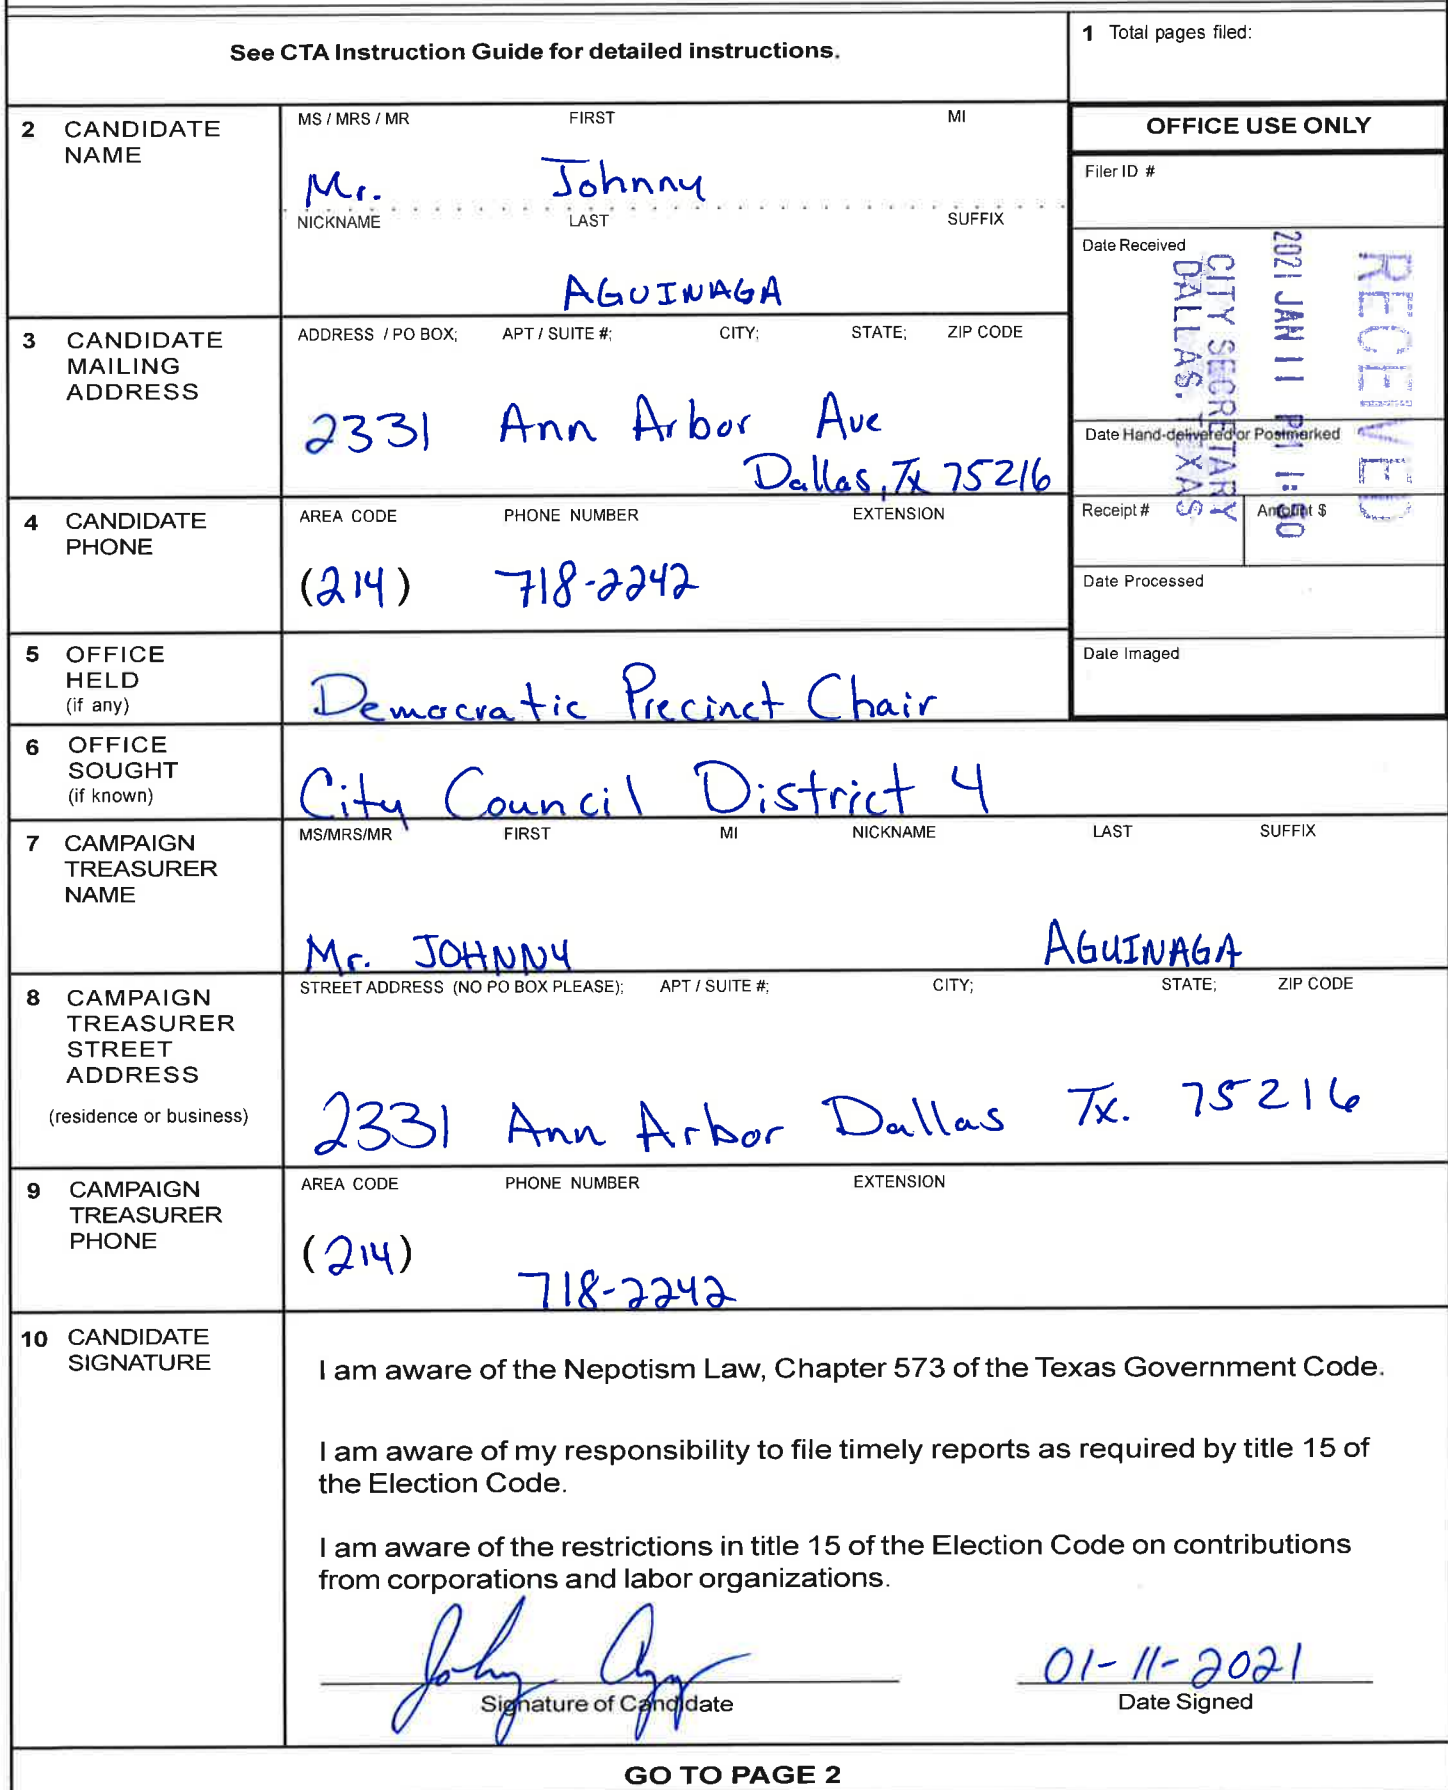 See CTA Instruction Guide for detailed instructions.
1 Total pages filed:
2 CANDIDATE NAME
MS / MRS / MR FIRST MI
Mr. Johnny
NICKNAME LAST SUFFIX
AGUINAGA
OFFICE USE ONLY
Filer ID #
Date Received
RECEIVED
2021 JAN 11 PM 1:50
CITY SECRETARY
DALLAS, TEXAS
Date Hand-delivered or Postmarked
Receipt # Amount $
Date Processed
Date Imaged
3 CANDIDATE MAILING ADDRESS
ADDRESS / PO BOX; APT / SUITE #; CITY; STATE; ZIP CODE
2331 Ann Arbor Ave
Dallas, Tx 75216
4 CANDIDATE PHONE
AREA CODE PHONE NUMBER EXTENSION
(214) 718-2242
5 OFFICE HELD (if any)
Democratic Precinct Chair
6 OFFICE SOUGHT (if known)
City Council District 4
7 CAMPAIGN TREASURER NAME
MS/MRS/MR FIRST MI NICKNAME LAST SUFFIX
Mr. JOHNNY AGUINAGA
8 CAMPAIGN TREASURER STREET ADDRESS
(residence or business)
STREET ADDRESS (NO PO BOX PLEASE); APT / SUITE #; CITY; STATE; ZIP CODE
2331 Ann Arbor Dallas Tx. 75216
9 CAMPAIGN TREASURER PHONE
AREA CODE PHONE NUMBER EXTENSION
(214) 718-2242
10 CANDIDATE SIGNATURE
I am aware of the Nepotism Law, Chapter 573 of the Texas Government Code.
I am aware of my responsibility to file timely reports as required by title 15 of
the Election Code.
I am aware of the restrictions in title 15 of the Election Code on contributions
from corporations and labor organizations.
01-11-2021
Signature of Candidate Date Signed
GO TO PAGE 2